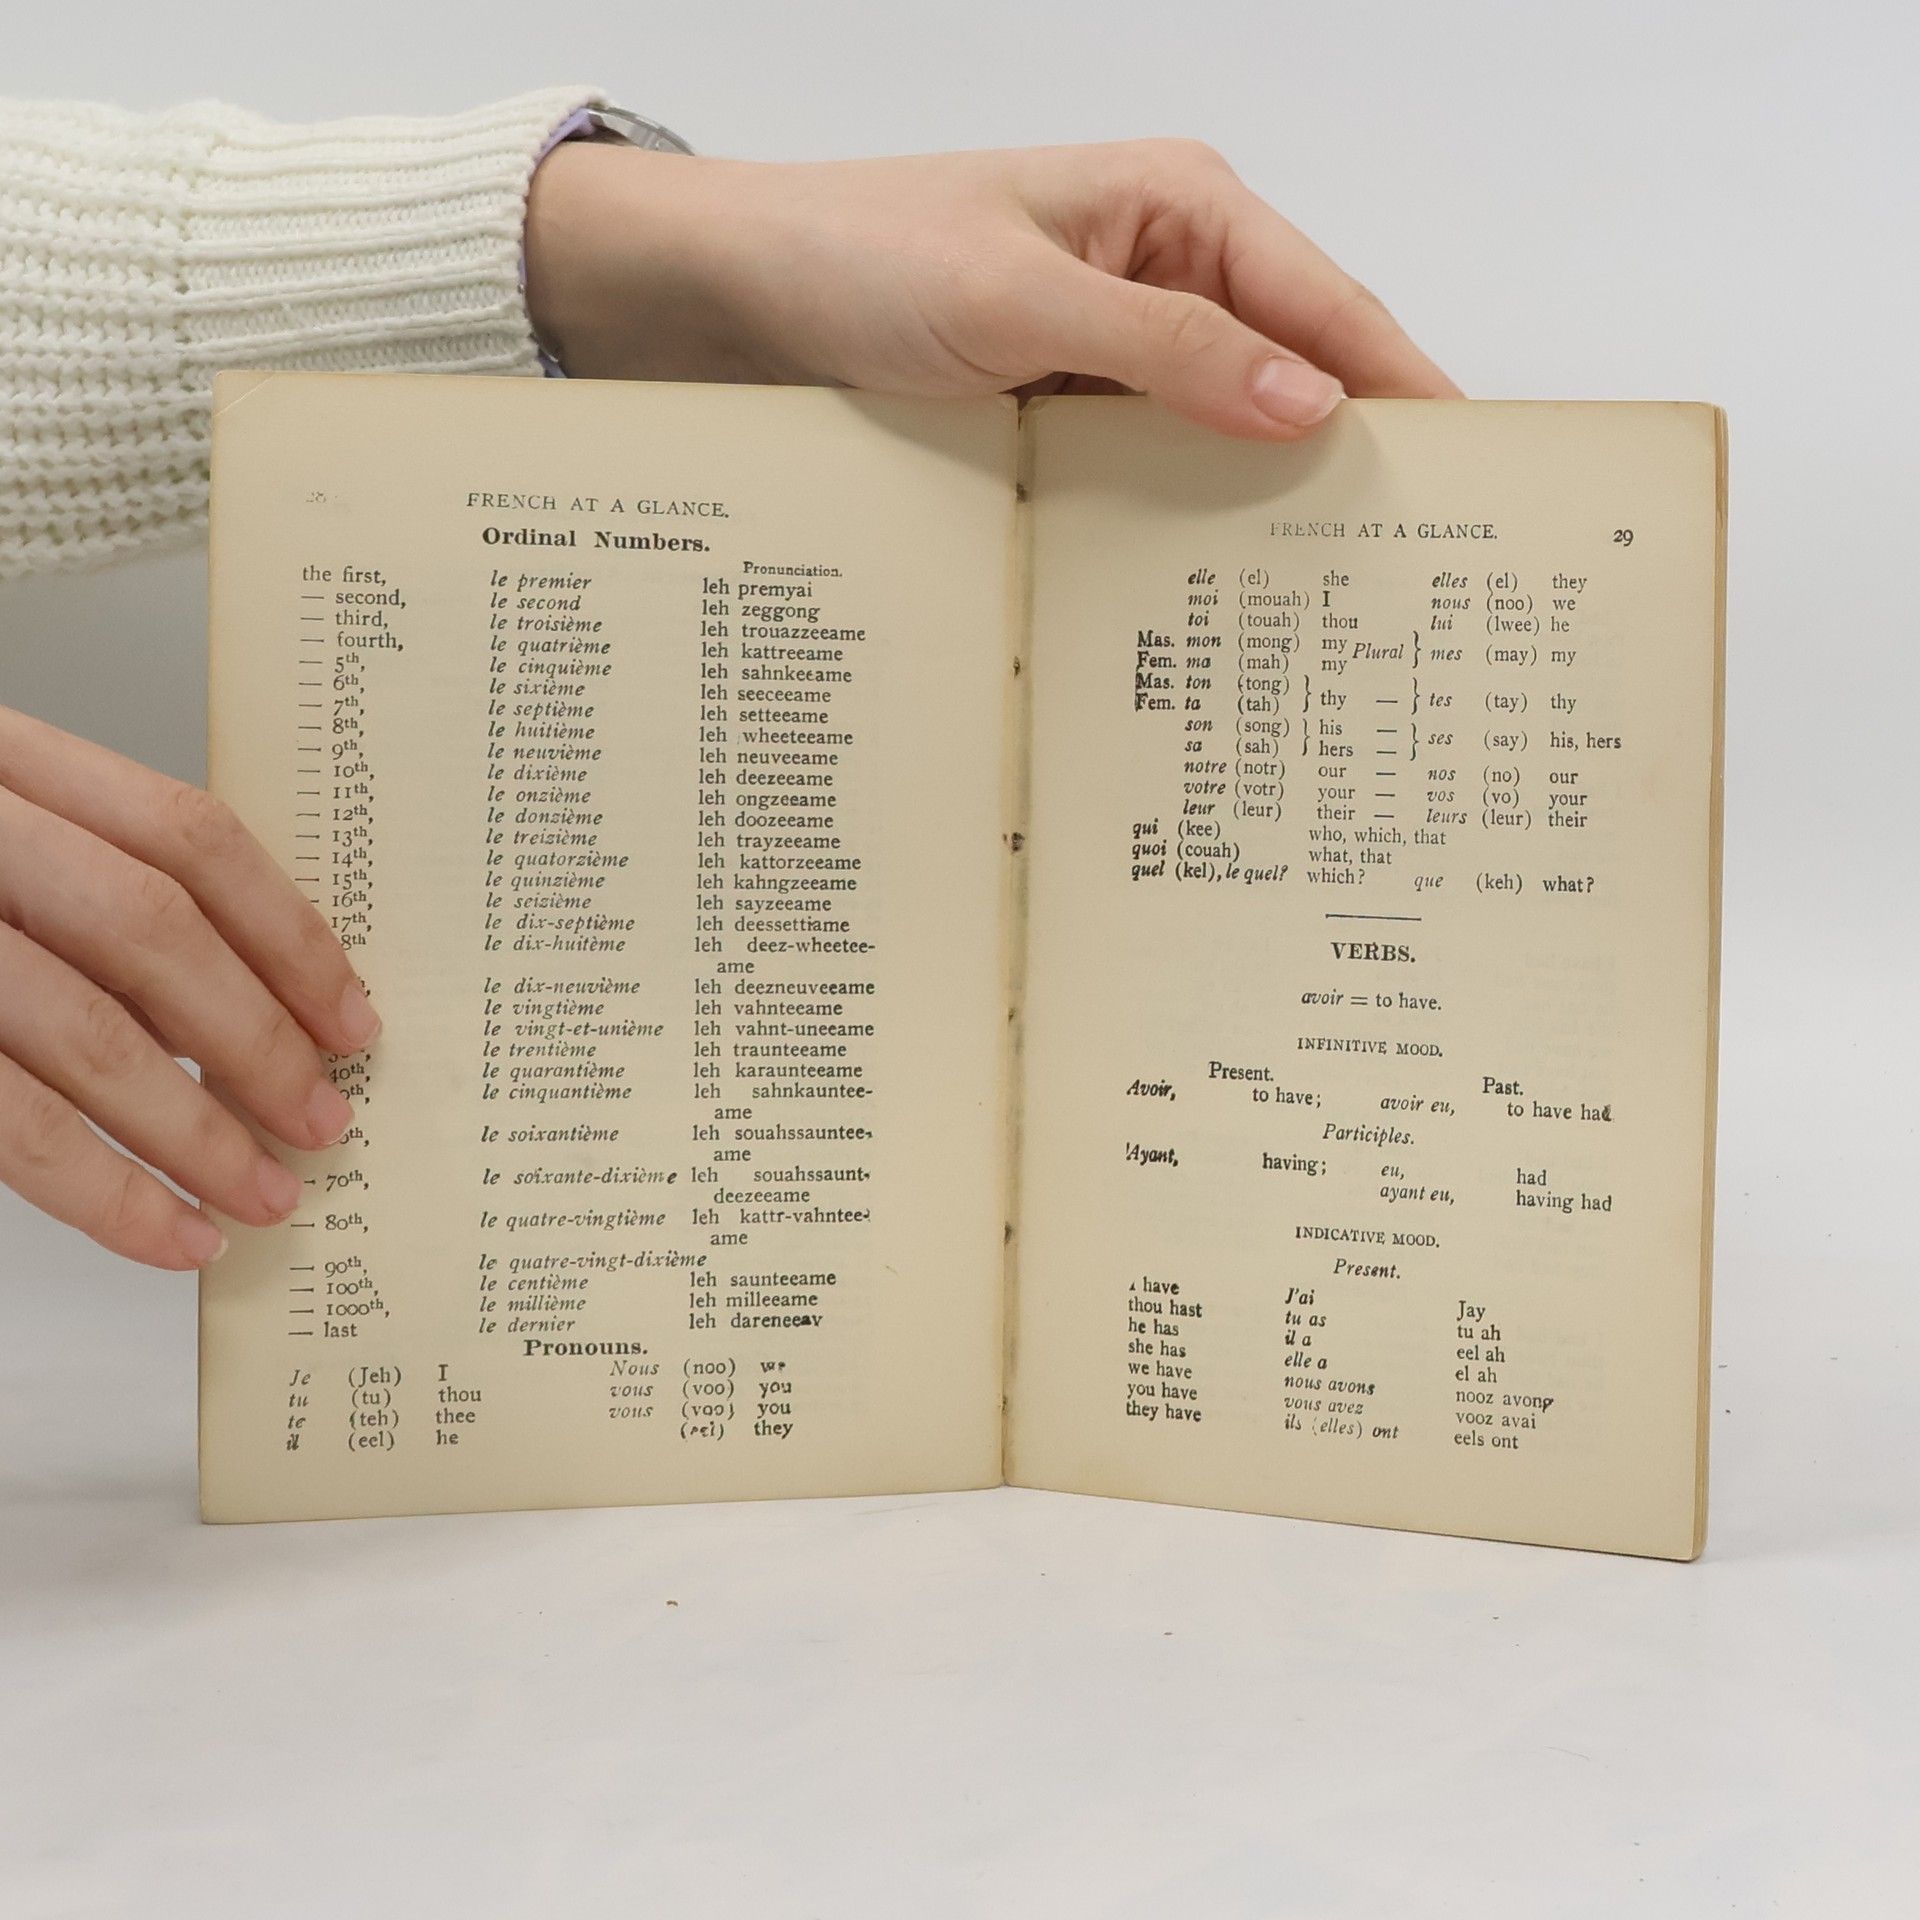 28
FRENCH AT A GLANCE.
Ordinal Numbers.
Pronunciation.
the first, le premier leh premyai
— second, le second leh zeggong
— third, le troisième leh trouazzeeame
— fourth, le quatrième leh kattreeame
— 5th, le cinquième leh sahnkeeame
— 6th, le sixième leh seeceeame
— 7th, le septième leh setteeame
— 8th, le huitième leh wheeteeame
— 9th, le neuvième leh neuveeame
— 10th, le dixième leh deezeeame
— 11th, le onzième leh ongzeeame
— 12th, le donzième leh doozeeame
— 13th, le treizième leh trayzeeame
— 14th, le quatorzième leh kattorzeeame
— 15th, le quinzième leh kahngzeeame
— 16th, le seizième leh sayzeeame
17th, le dix-septième leh deessettiame
8th le dix-huitème leh deez-wheetee-
ame
le dix-neuvième leh deezneuveeame
le vingtième leh vahnteeame
le vingt-et-unième leh vahnt-uneeame
le trentième leh traunteeame
40th, le quarantième leh karaunteeame
0th, le cinquantième leh sahnkauntee-
ame
0th, le soixantième leh souahssauntee-
ame
— 70th, le soixante-dixième leh souahssaunt-
deezeeame
— 80th, le quatre-vingtième leh kattr-vahntee-
ame
— 90th, le quatre-vingt-dixième
— 100th, le centième leh saunteeame
— 1000th, le millième leh milleeame
— last le dernier leh dareneeav
Pronouns.
Je (Jeh) I Nous (noo) we
tu (tu) thou vous (voo) you
te (teh) thee vous (voo) you
il (eel) he (eel) they
FRENCH AT A GLANCE. 29
elle (el) she elles (el) they
moi (mouah) I nous (noo) we
toi (touah) thou lui (lwee) he
Mas. mon (mong) my Plural } mes (may) my
Fem. ma (mah) my
Mas. ton (tong) } thy — } tes (tay) thy
Fem. ta (tah)
son (song) } his — } ses (say) his, hers
sa (sah) hers —
notre (notr) our — nos (no) our
votre (votr) your — vos (vo) your
leur (leur) their — leurs (leur) their
qui (kee) who, which, that
quoi (couah) what, that
quel (kel), le quel? which? que (keh) what?
VERBS.
avoir = to have.
INFINITIVE MOOD.
Present. Past.
Avoir, to have; avoir eu, to have had
Participles.
Ayant, having; eu, had
ayant eu, having had
INDICATIVE MOOD.
Present.
I have J'ai Jay
thou hast tu as tu ah
he has il a eel ah
she has elle a el ah
we have nous avons nooz avong
you have vous avez vooz avai
they have ils (elles) ont eels ont